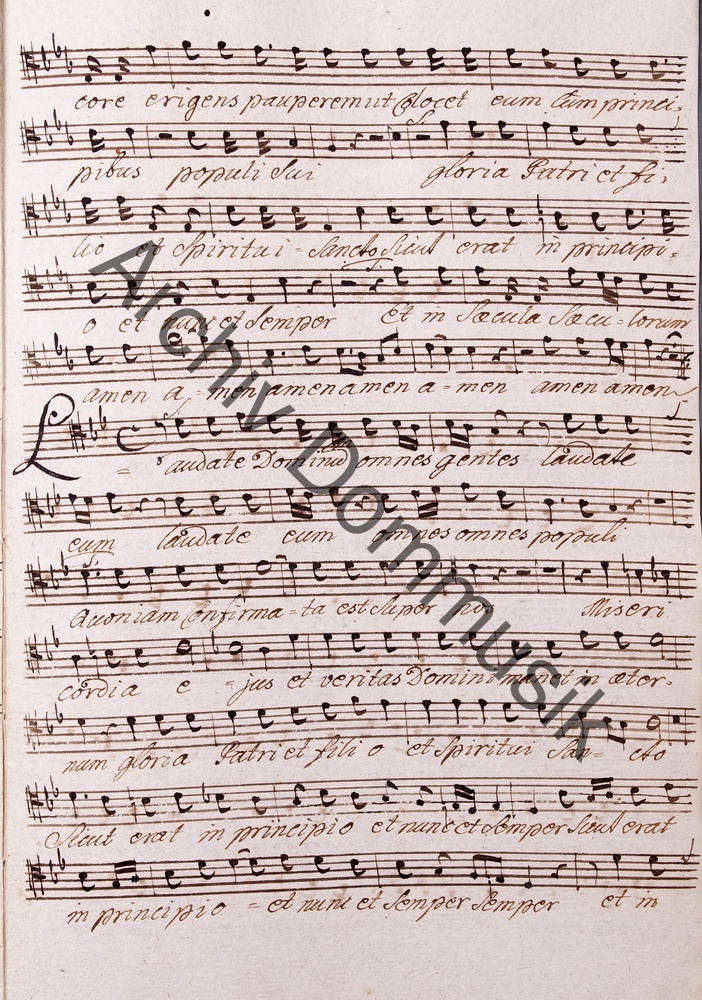 core erigens pauperem ut Colocet eum Cum princi,
pibus populi Sui gloria Patri et fi,
lio et Spiritui - Sancto, Sicut erat in principi,
o et nunc et Semper Et in Sæcula Sæcu - lorum
amen a, - men amen amen a - men amen amen,
Laudate Dominum omnes gentes laudate
eum laudate eum omnes omnes populi
Quoniam Confirma - ta est Super nos Miseri
cordia e - jus et veritas Domini manet in æter,
num gloria Patri et filio et Spiritui San= cto
Sicut erat in principio et nunc et Semper Sicut erat
in principio = et nunc et Semper Semper et in
Archiv Dommusik